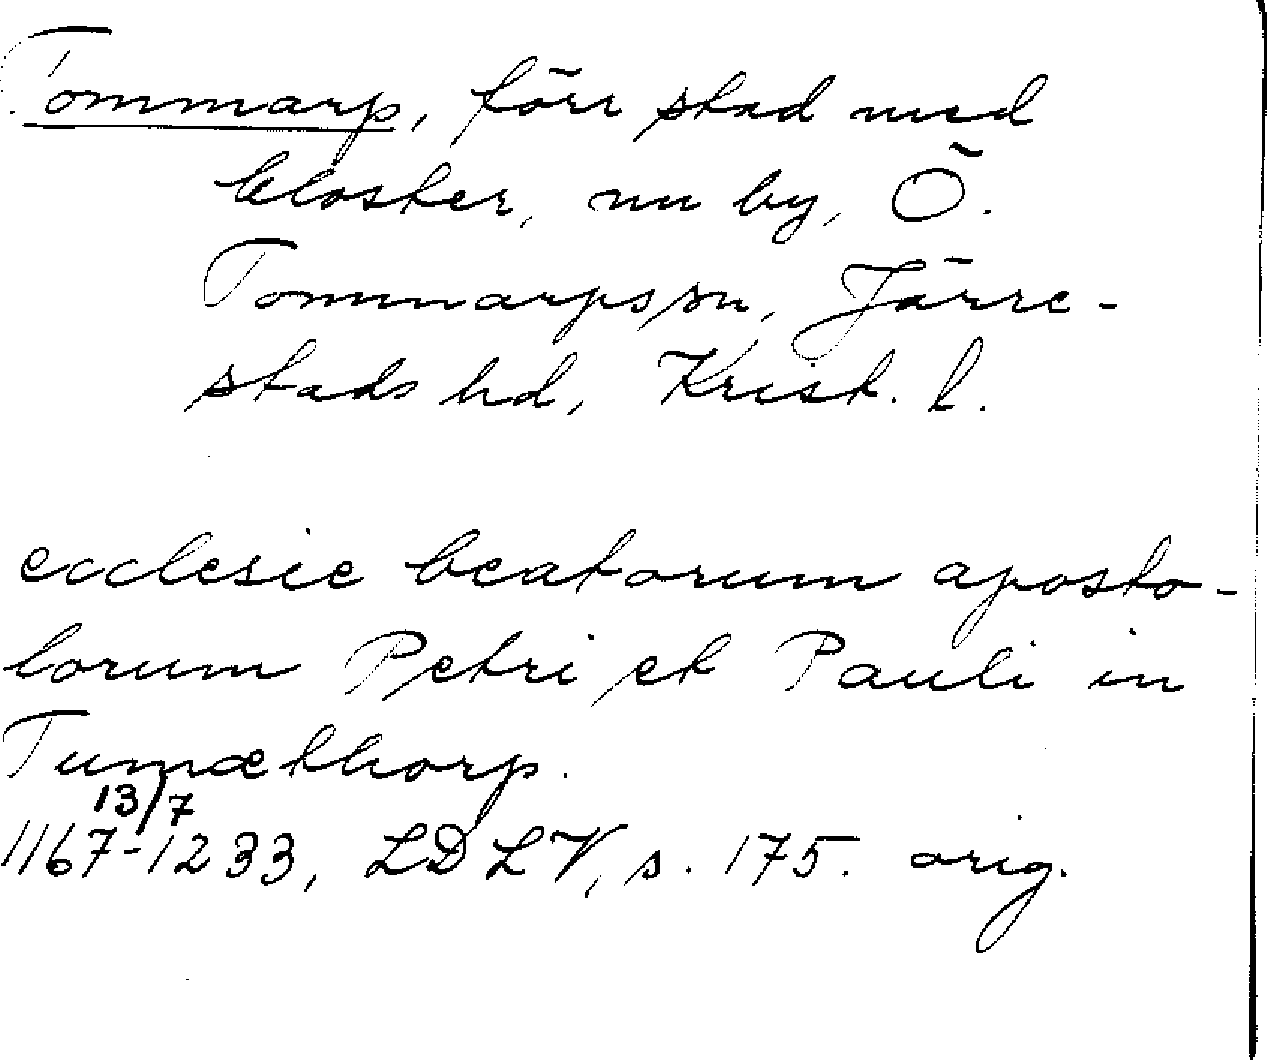 Tommarp, förr stad med
kloster, nu by, Ö.
Tommarps sn, Järre-
stads hd, Krist. l.
ecclesie beatorum aposto-
lorum Petri et Pauli in
Tumæthorp.
13/7
1167-1233, LDLV, s. 175. orig.